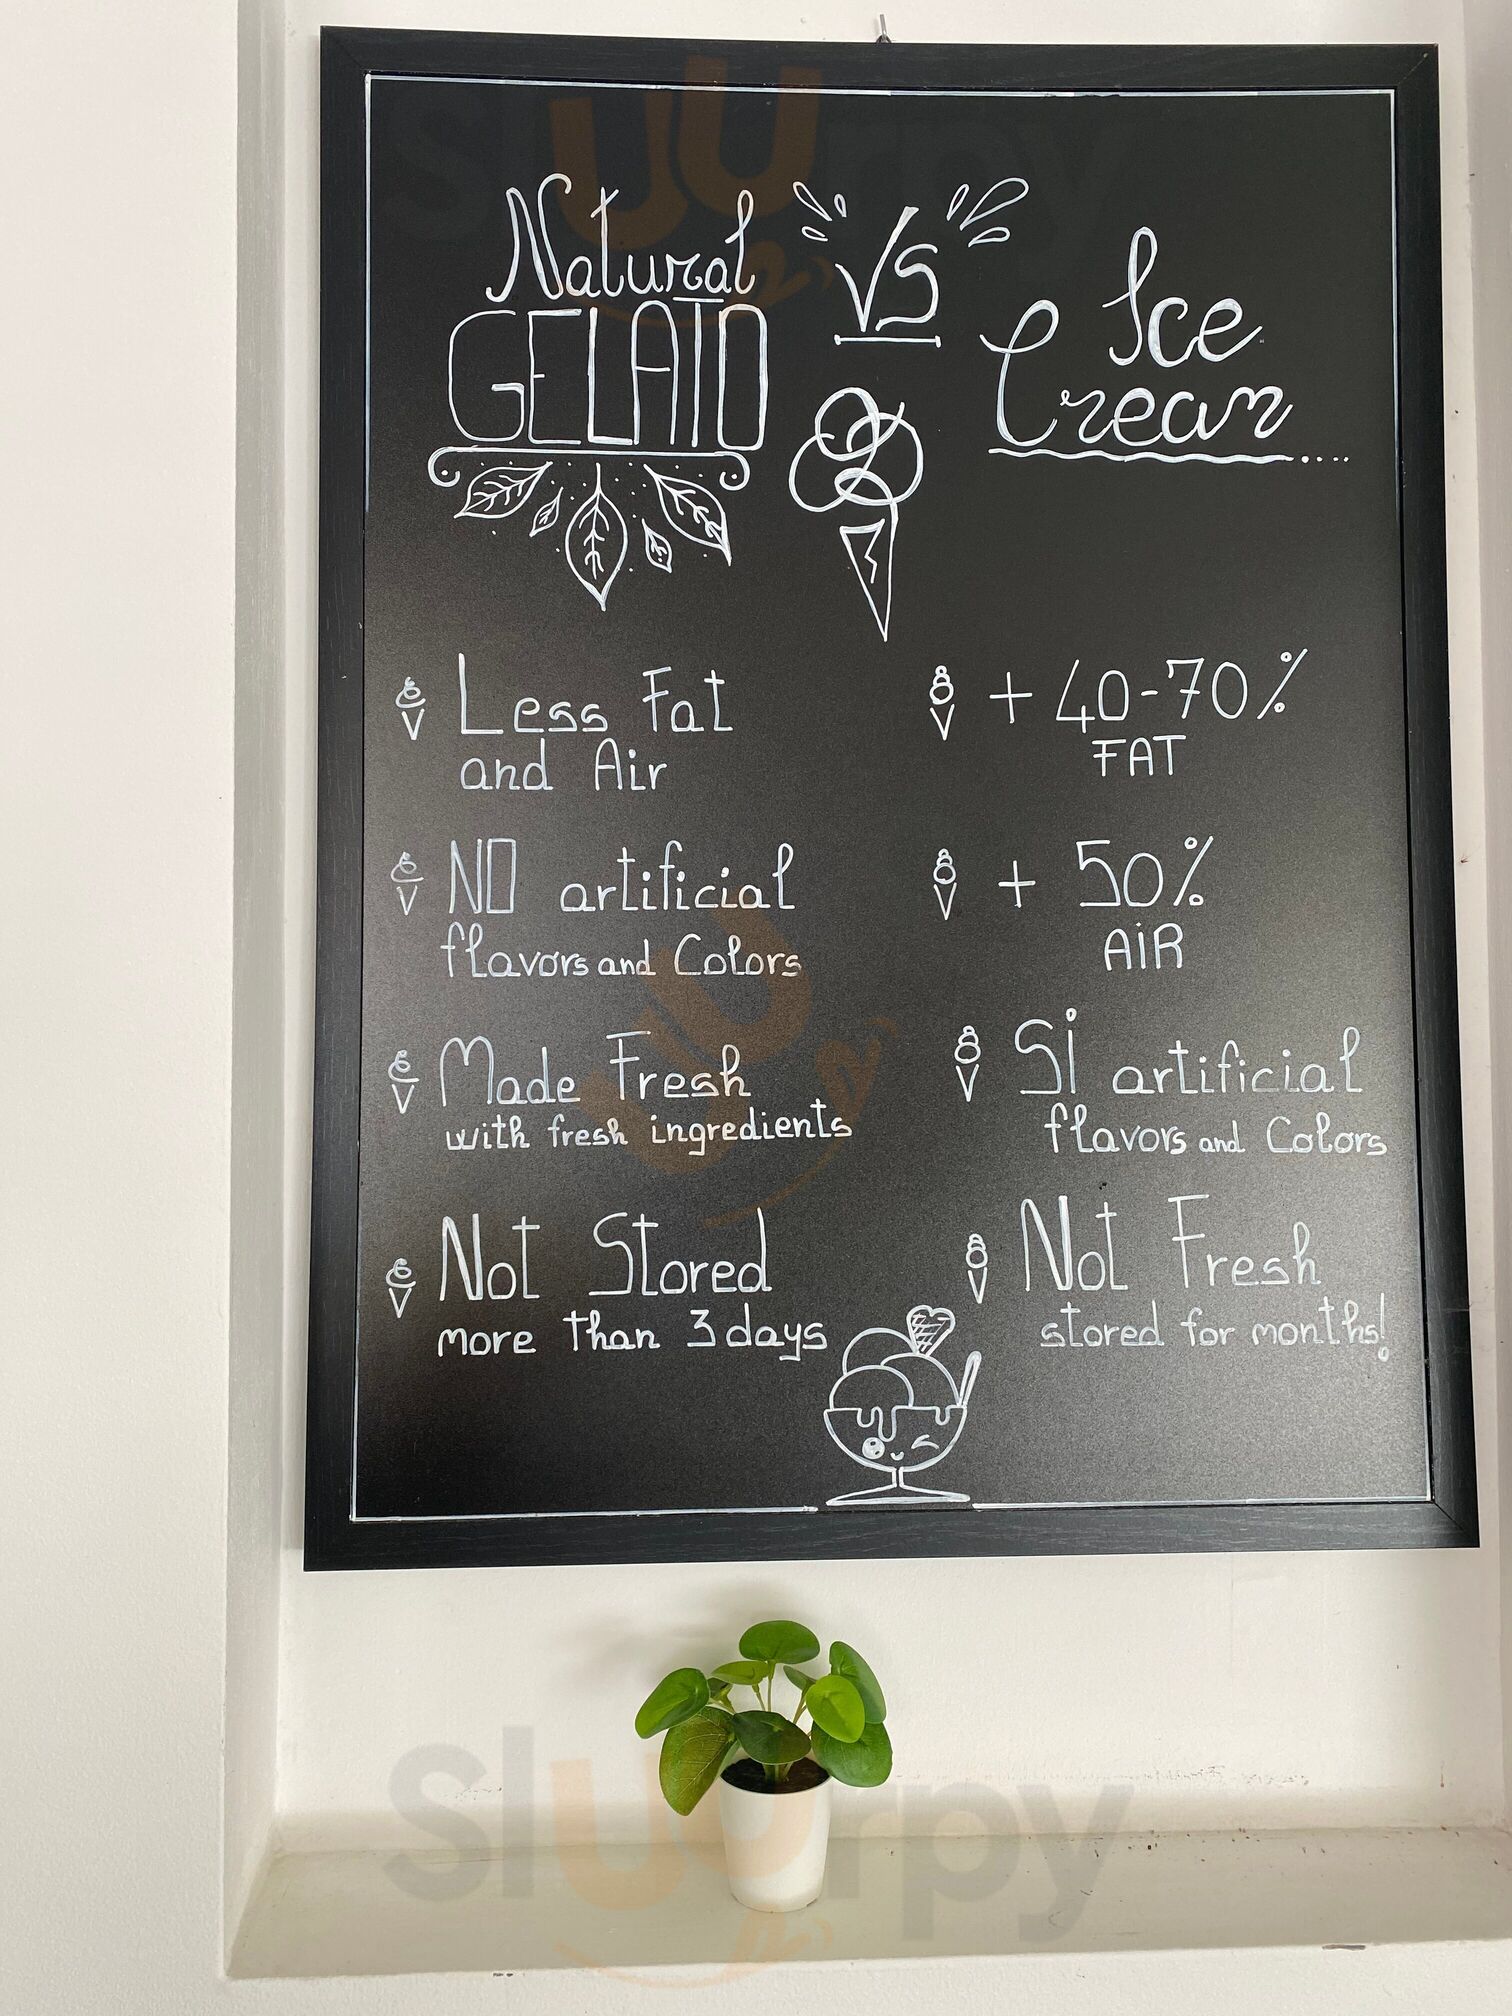 Natural
GELATO
VS
Ice
Cream
Less Fat
and Air
NO artificial
flavors and Colors
Made Fresh
with fresh ingredients
Not Stored
more than 3 days
+ 40-70%
FAT
+ 50%
AiR
Si artificial
flavors and Colors
Not Fresh
stored for months!
Sluurpy